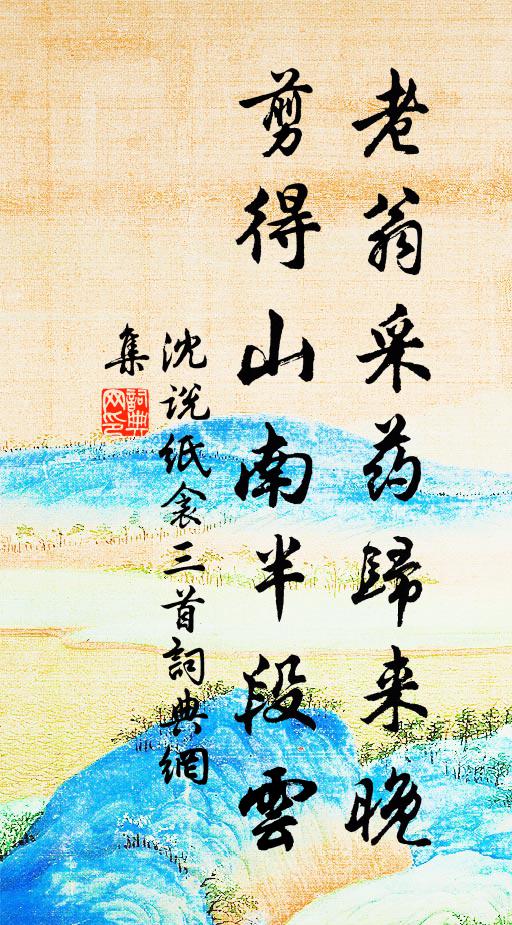 老翁采药歸来晚
剪得山南半段雲
沈说纸衾三首詞典網
集
詞典
网印